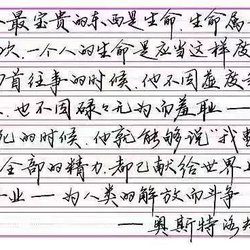 最宝贵的东西是生命,生命属
次,一个人的生命是应当这样度
首往事的时候,他不因虚度
,也不因碌々无为而羞耻——
死的时候,他就能够说“我
全部的精力,都已献给世界上
业——为人类的解放而斗争
——奥斯特洛